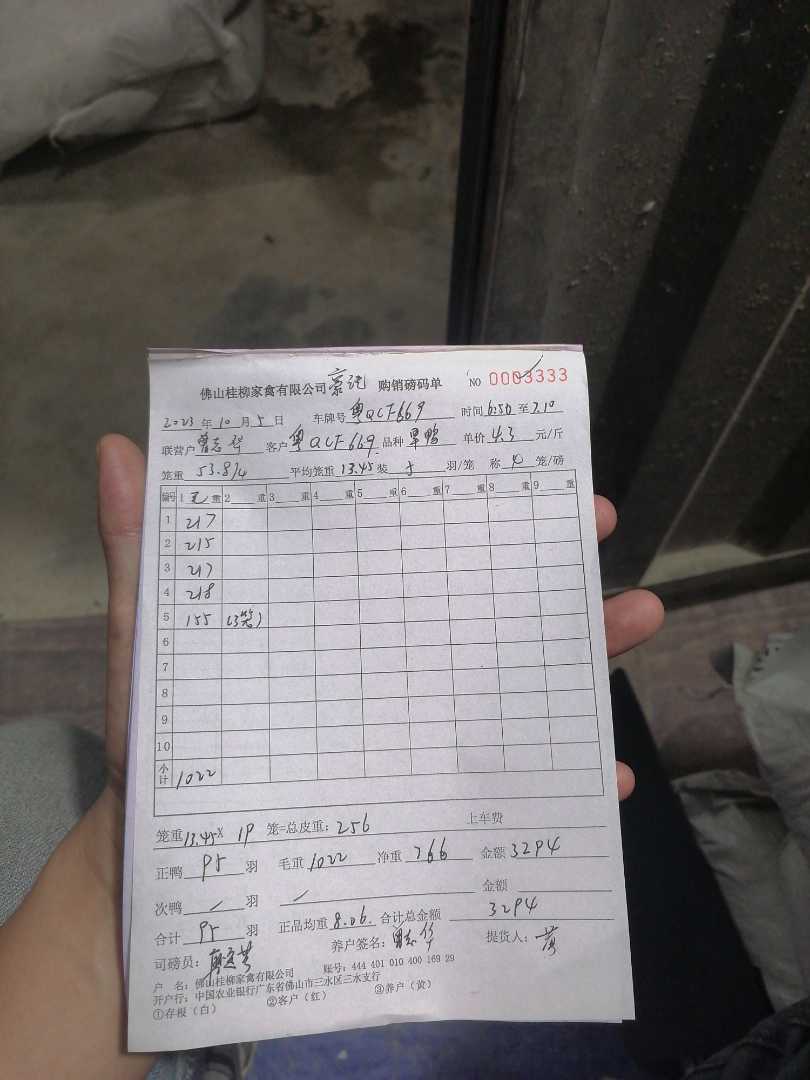 佛山桂柳家禽有限公司 豪记 购销磅码单 NO 0003333
2023年10月5日 车牌号 粤QCF669 时间 6:50 至 7.10
联营户 曾志华 客户 粤QCF669 品种 旱鸭 单价 4.3 元/斤
笼重 53.8/4 平均笼重 13.45 装 5 羽/笼 称 4 笼/磅
编号 1 毛 重 2 重 3 重 4 重 5 重 6 重 7 重 8 重 9 重
1 217
2 215
3 217
4 218
5 155 (3笼)
6
7
8
9
10
小计 1022
笼重 13.45 X 19 笼=总皮重: 256 上车费
正鸭 95 羽 毛重 1022 净重 766 金额 3294
次鸭 羽 金额
合计 95 羽 正品均重 8.06 合计总金额 3294
司磅员: 养户签名: 曾志华 提货人: 黄
户 名: 佛山桂柳家禽有限公司 账号: 444 401 010 400 169 29
开户行: 中国农业银行广东省佛山市三水区三水支行
①存根(白) ②客户(红) ③养户(黄)